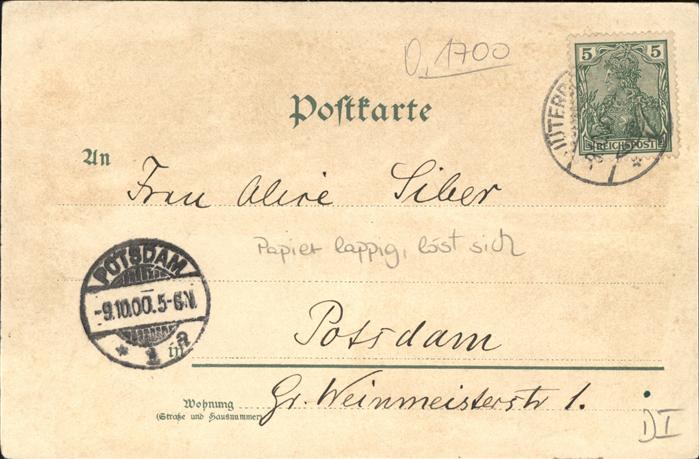 0,1700
5 5
REICHSPOST
JÜTERB
Postkarte
An
Frau Alice Siber
Papier lappig, löst sich
POTSDAM
-9.10.00.5-6N
* 1 a
in
Potsdam
Wohnung
(Straße und Hausnummer)
Gr. Weinmeisterstr 1.
DI